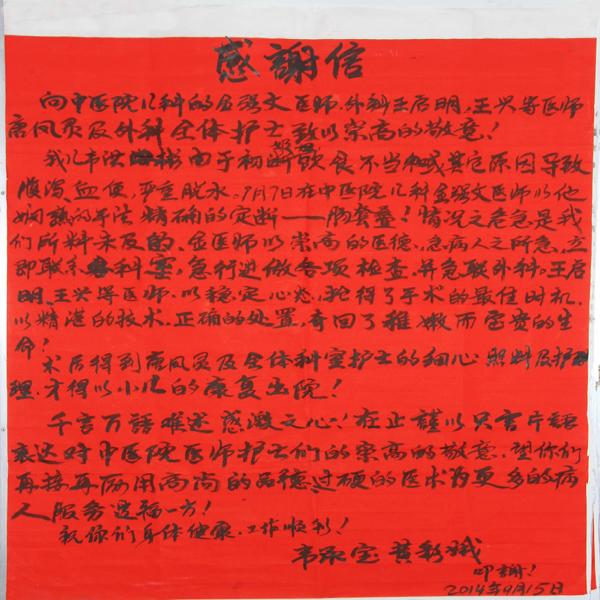 感謝信
向中医院儿科的金璐文医师.外科王启明,王兴等医师
唐凤灵及外科全体护士致以崇高的敬意!
我儿韦洪彬由于初断奶饮食不当或其它原因导致
腹泻血便,严重脱水.9月7日在中医院儿科金璐文医师以他
娴熟的手法精确的定断——肠套叠!情况之危急是我
们所料未及的.金医师以崇高的医德,急病人之所急,立
即联系科室,急行进做各项检查.并急联外科.王启
明.王兴等医师.以稳定心态,抢得了手术的最佳时机.
以精湛的技术.正确的处置,夺回了稚嫩而宝贵的生
命!
术后得到唐凤灵及全体科室护士的细心照料及护
理.才得以小儿的康复出院!
千言万語难述感激之心!在此謹以只言片語
表达对中医院医师护士们的崇高的敬意.望你们
再接再厉用高尚的品德,过硬的医术为更多的病
人服务造福一方!
祝你们身体健康.工作顺利!
韦承宝 黄彩斌
叩謝!
2014年9月15日